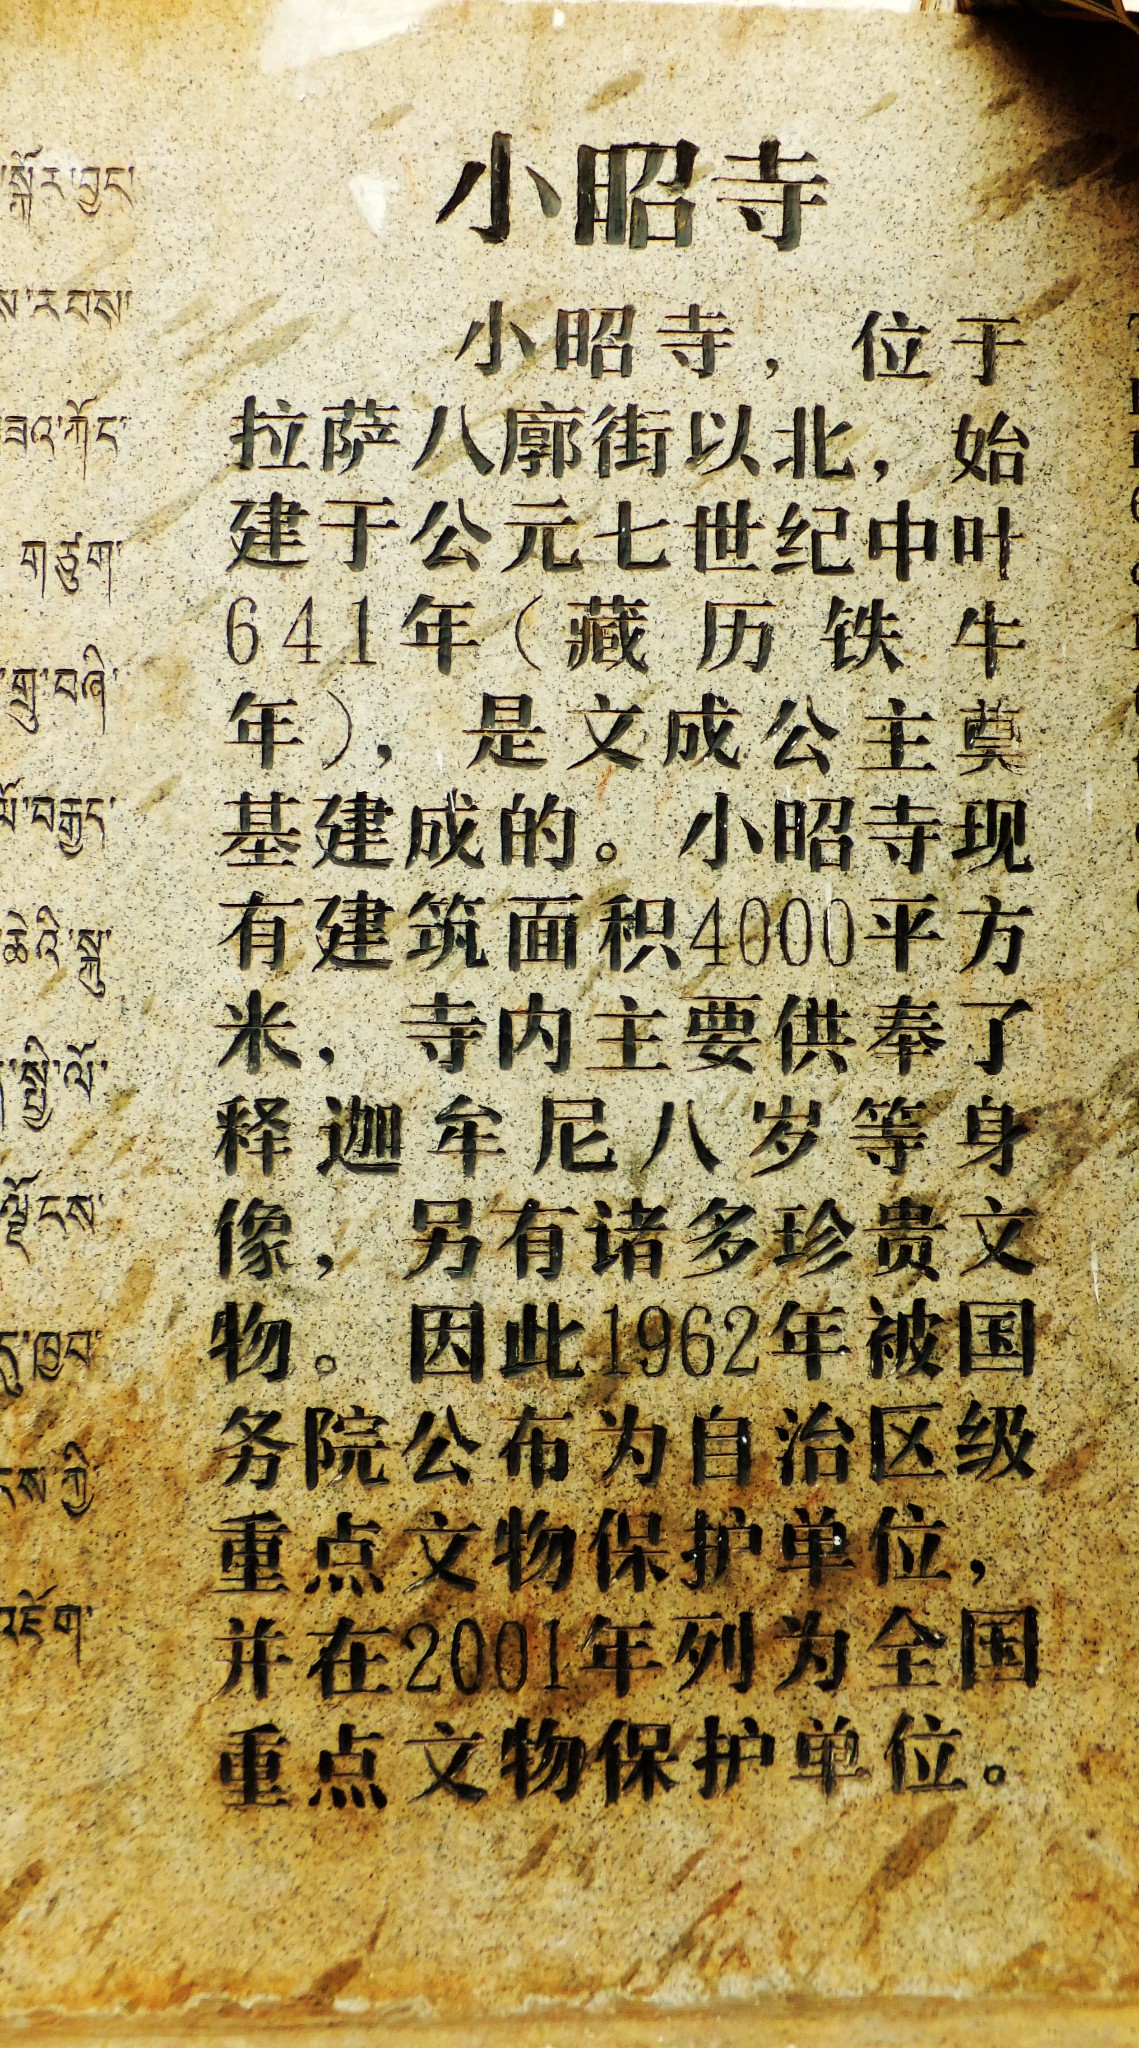 小昭寺
小昭寺，位于
拉萨八廓街以北，始
建于公元七世纪中叶
641年（藏历铁牛
年），是文成公主奠
基建成的。小昭寺现
有建筑面积4000平方
米，寺内主要供奉了
释迦牟尼八岁等身
像，另有诸多珍贵文
物。因此1962年被国
务院公布为自治区级
重点文物保护单位，
并在2001年列为全国
重点文物保护单位。
སྐོར་བྱང་
ས་རབས་
ཟའ་ཀོང་
གཙུག་
གྲུ་བཞི་
ལོ་བརྒྱད་
ཚེའི་སྐུ་
སྤྱི་ལོ་
ལྗོངས་
ཁྱབ་
ངས་ཀྱི་
འཇོག་